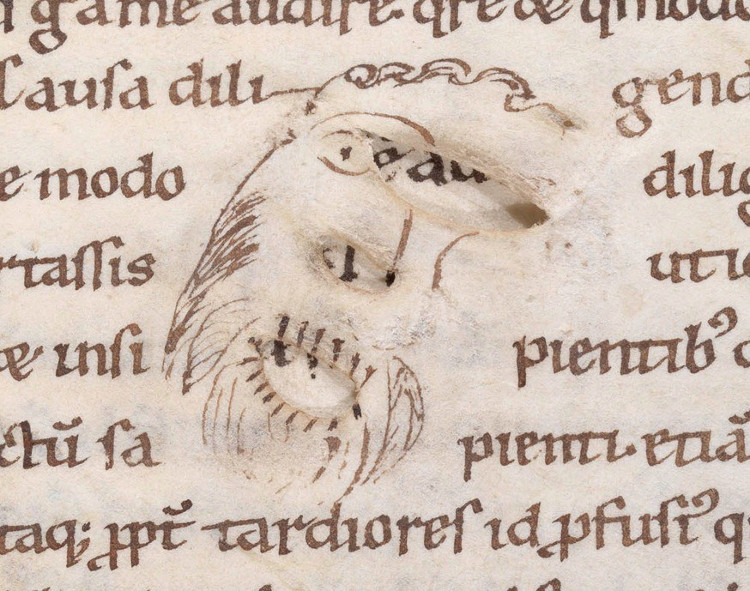 game audire. qre de qmodo
causa dili gend
e modo dilig
rtassis uti
insi pientibꝰ
ctū sa pienti. etiā
taq; ꝓpt̄ tardiores id ꝓfusiꝰ q